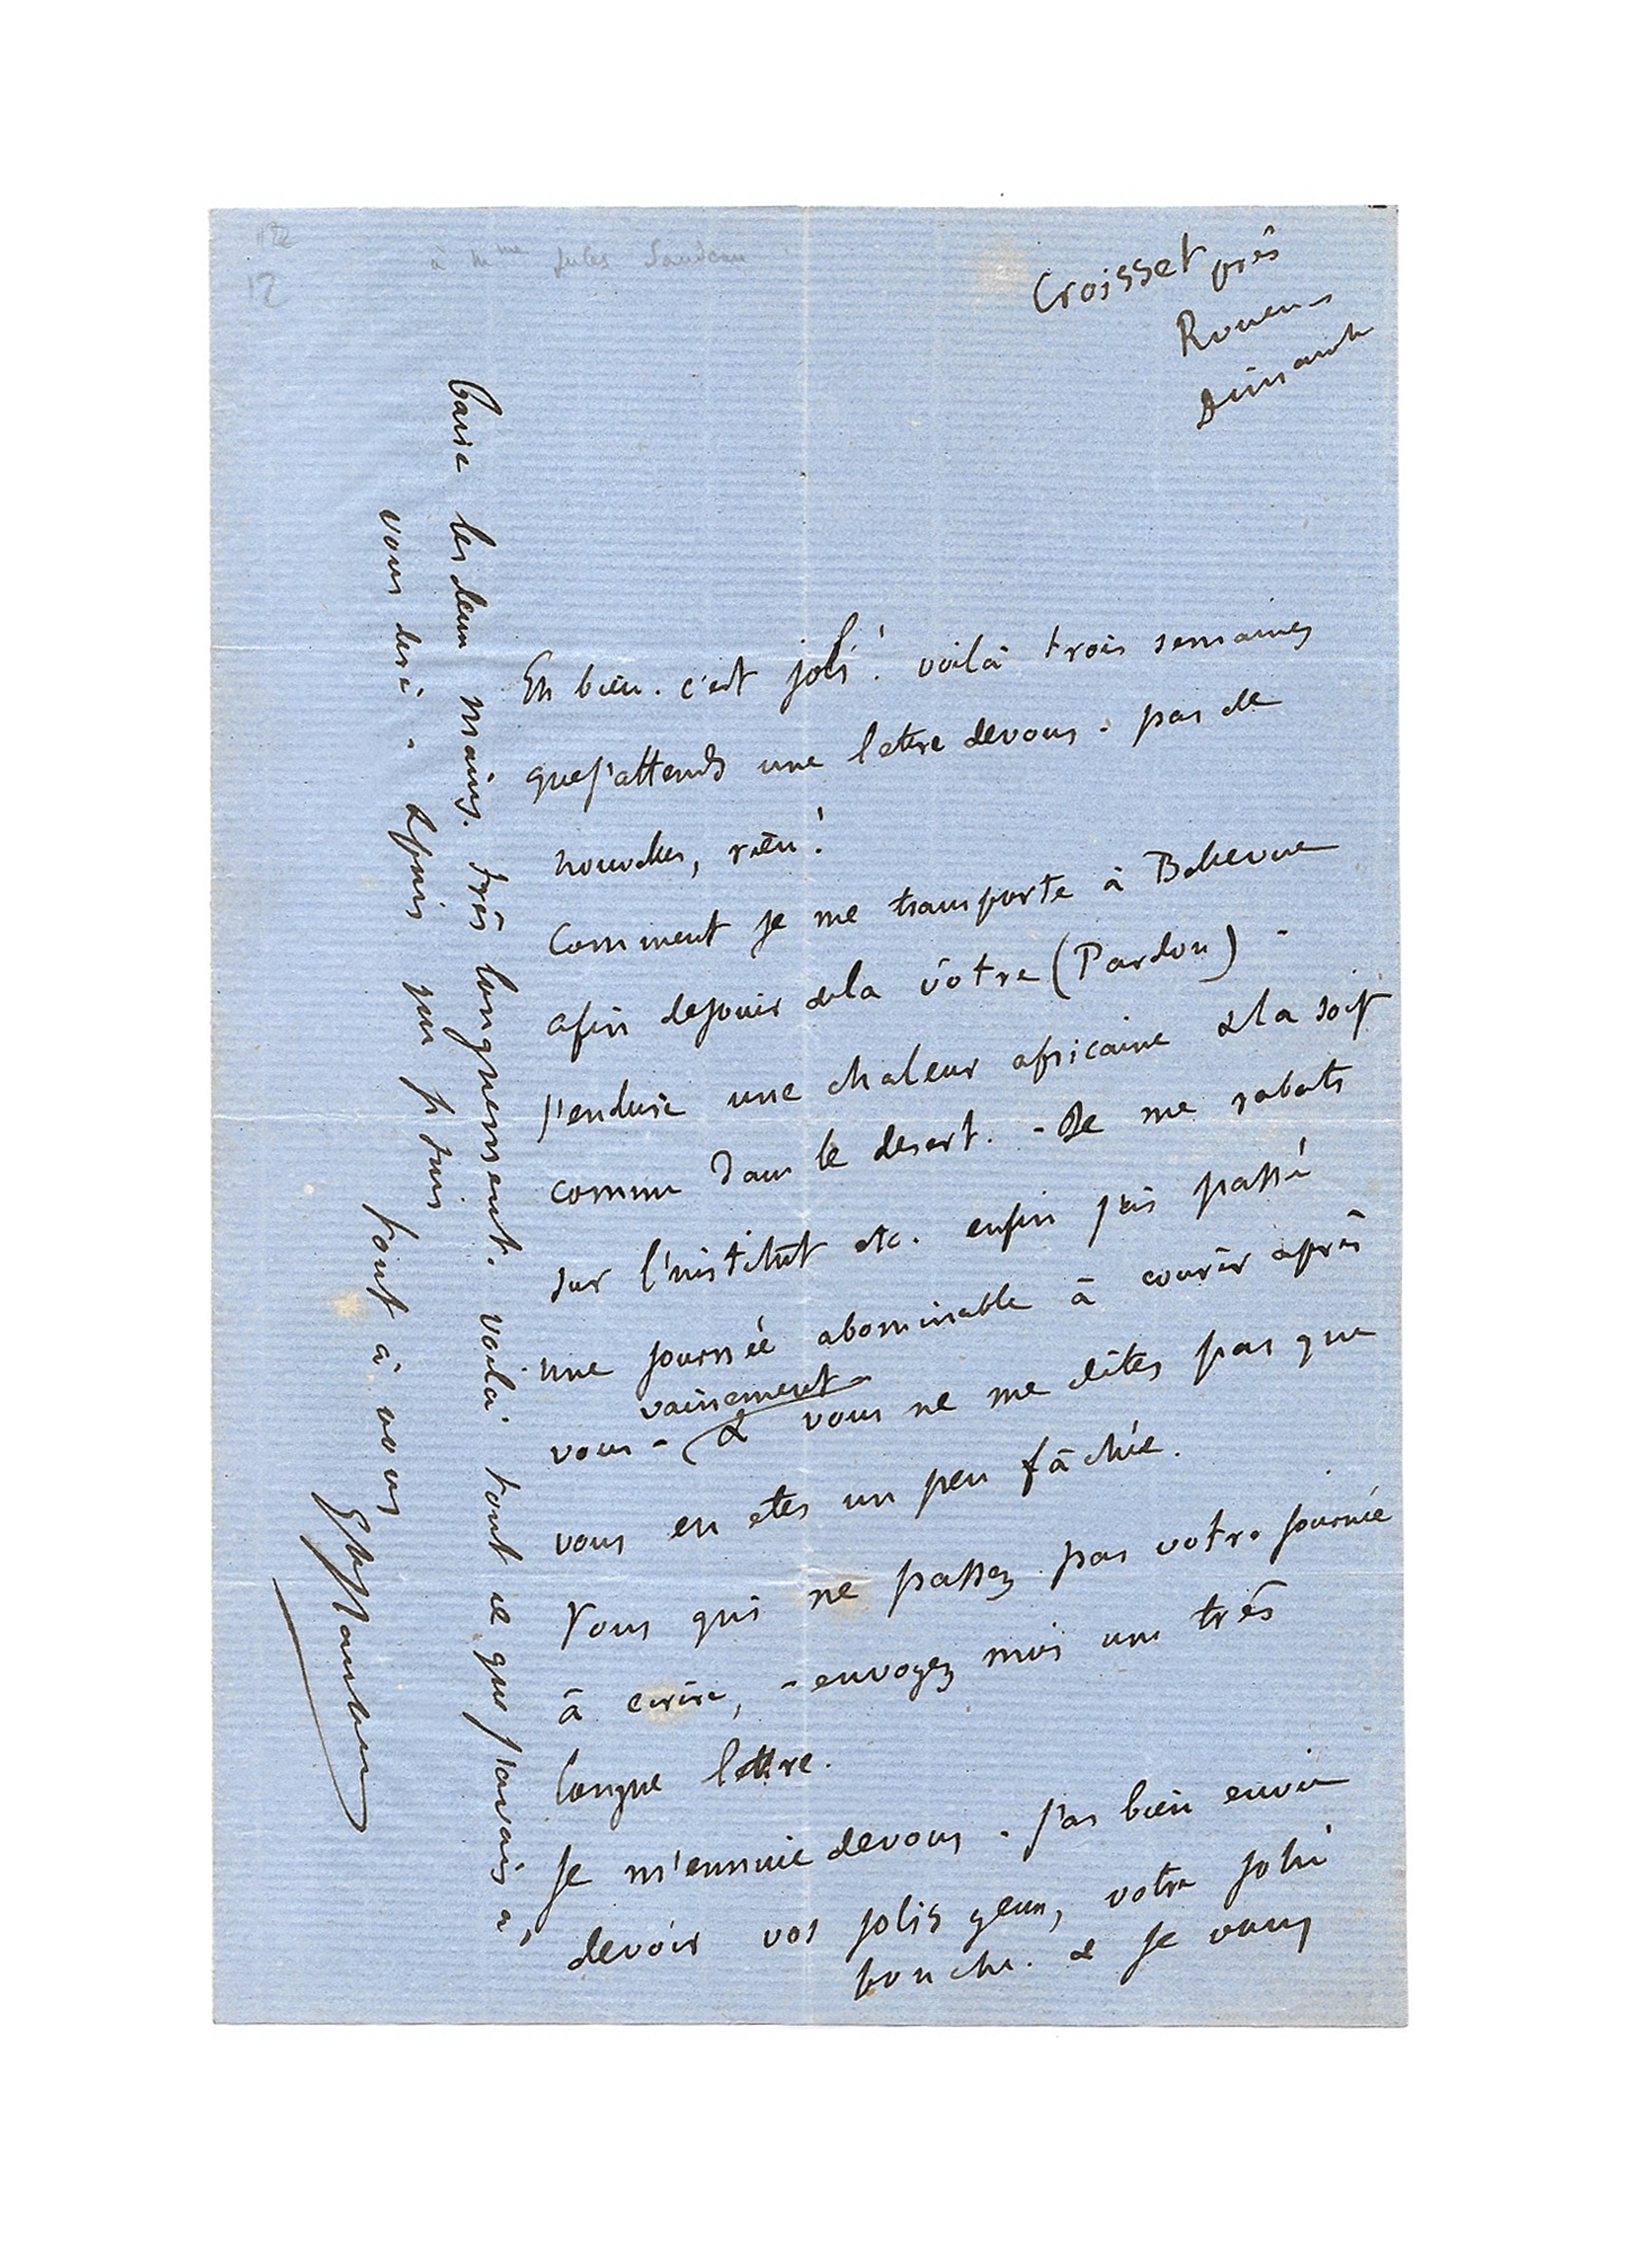 12
à Mme Jules Sandeau
Croisset près
Rouen
Dimanche
Eh bien. c'est joli ! voilà trois semaines
que j'attends une lettre de vous. pas de
nouvelles, rien !
Comment je me transporte à Bellevue
afin de jouir de la vôtre (Pardon) -
j'endure une chaleur africaine & la soif
comme dans le desert. - Je me rabats
sur l'institut etc. enfin j'ai passé
une journée abominable à courir après
vainement
vous - & vous ne me dites pas que
vous en etes un peu fâchée.
Vous qui ne passez pas votre journée
à ecrire, - envoyez moi une très
longue lettre.
Je m'ennuie de vous. J'ai bien envie
de voir vos jolis yeux, votre jolie
bouche. & je vous
baise les deux mains. très longuement. voilà tout ce que j'avais à
vous dire. - depuis que je suis tout à vous
Gve Flaubert